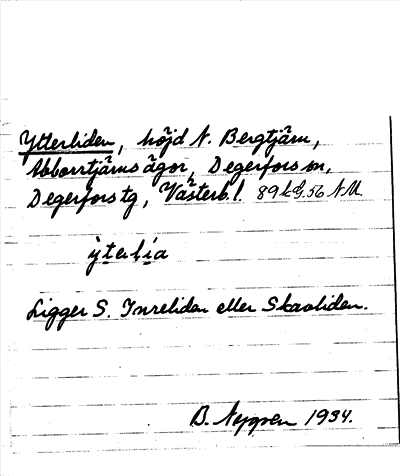 Ytterliden, höjd N. Bergtjärn,
Abborrtjärns ägor, Degerfors sn,
Degerfors tg, Västerb. l. 89 kg. 56 NM
ỳterlia
Ligger S. Inreliden eller Skavliden.
B. 1934.